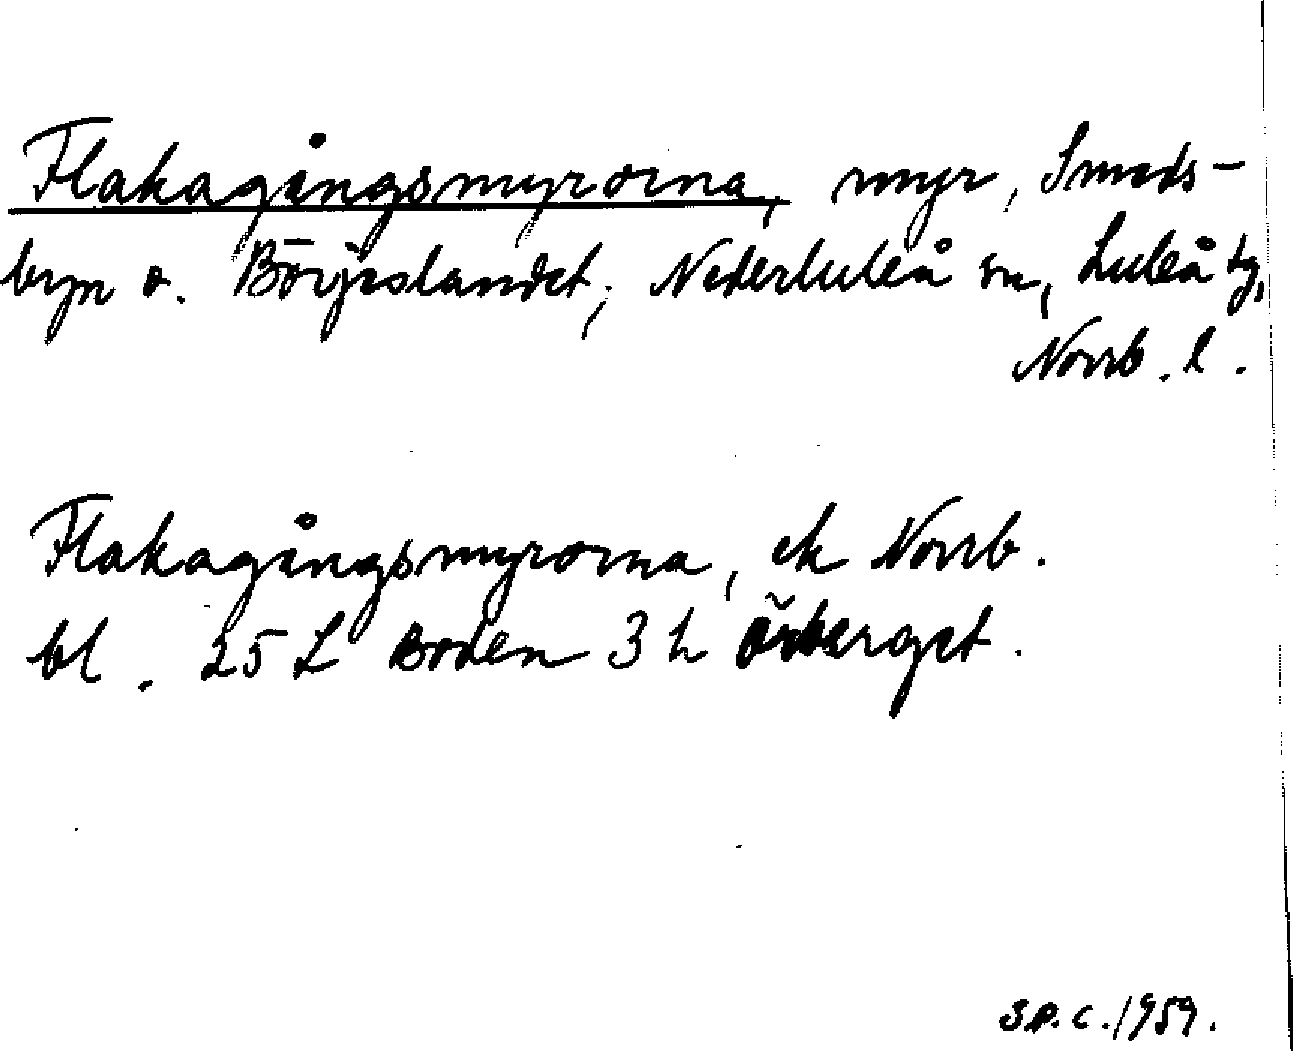 Flakagångsmyrorna, myr, Smeds-
byn o. Börjeslandet, Nederluleå sn, Luleå tg,
Norrb. l.
Flakagångsmyrorna, ek Norrb.
bl. 25 L Boden 3 h Örberget.
S.P.C. 1959.